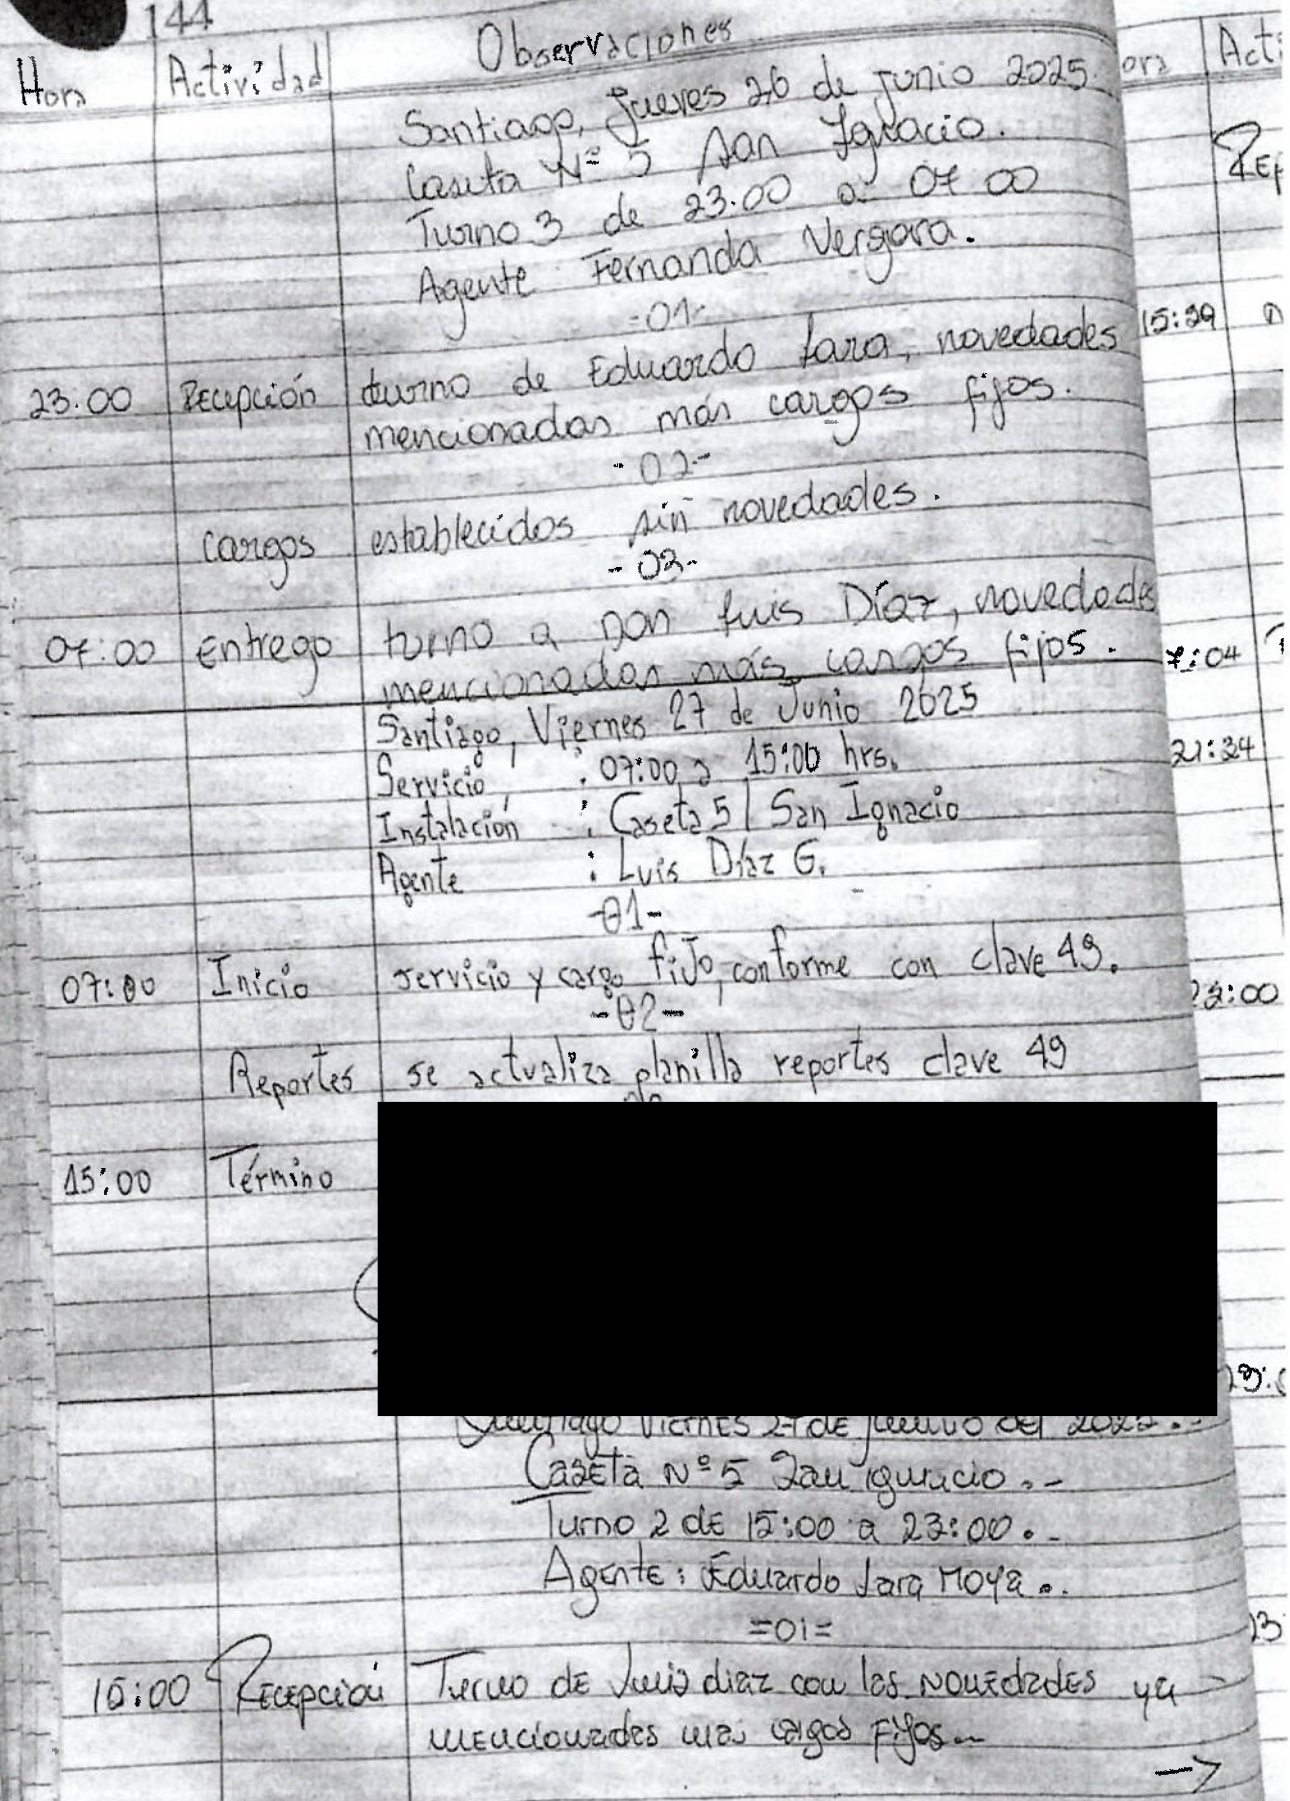 144
Hora Actividad Observaciones
Santiago, Jueves 26 de Junio 2025.
Caseta Nº 5 San Ignacio.
Turno 3 de 23.00 a 07 00
Agente Fernanda Vergara.
-01-
23.00 Recepción turno de Eduardo Lara, novedades
mencionadas más cargos fijos.
-02-
cargos establecidos sin novedades.
-03-
07:00 Entrego turno a Don Luis Díaz, novedades
mencionadas más cargos fijos.
Santiago, Viernes 27 de Junio 2025
Servicio : 07:00 a 15:00 hrs.
Instalación : Caseta 5 / San Ignacio
Agente : Luis Díaz G.
-01-
07:00 Inicio servicio y cargo fiJo, conforme con clave 49.
-02-
Reportes se actualiza planilla reportes clave 49
15:00 Término
Santiago Viernes 27 de Junio del 2025.-
Caseta Nº 5 San Ignacio.-
Turno 2 de 15:00 a 23:00.-
Agente: Eduardo Lara Moya..
=01=
15:00 Recepción Turno de Luis diaz con las novedades ya
mencionadas mas cargos fijos.-
→
ora Acti
Rep
15:39
7:04
21:34
23:00
23